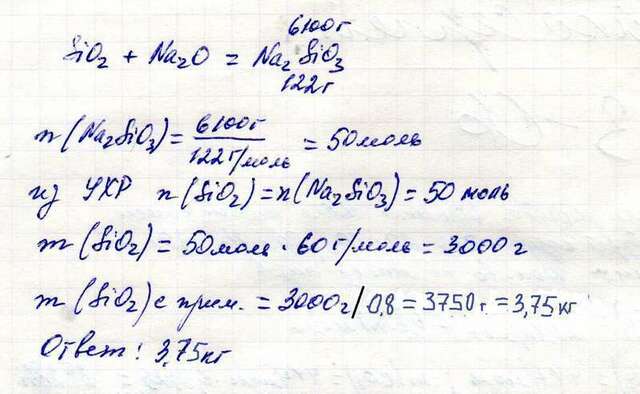 6100г
SiO₂ + Na₂O = Na₂SiO₃
122г
n(Na₂SiO₃) = 6100г / 122г/моль = 50моль
из УХР n(SiO₂) = n(Na₂SiO₃) = 50 моль
m(SiO₂) = 50моль · 60г/моль = 3000г
m(SiO₂) с прим. = 3000г/0,8 = 3750г. = 3,75кг
Ответ: 3,75кг